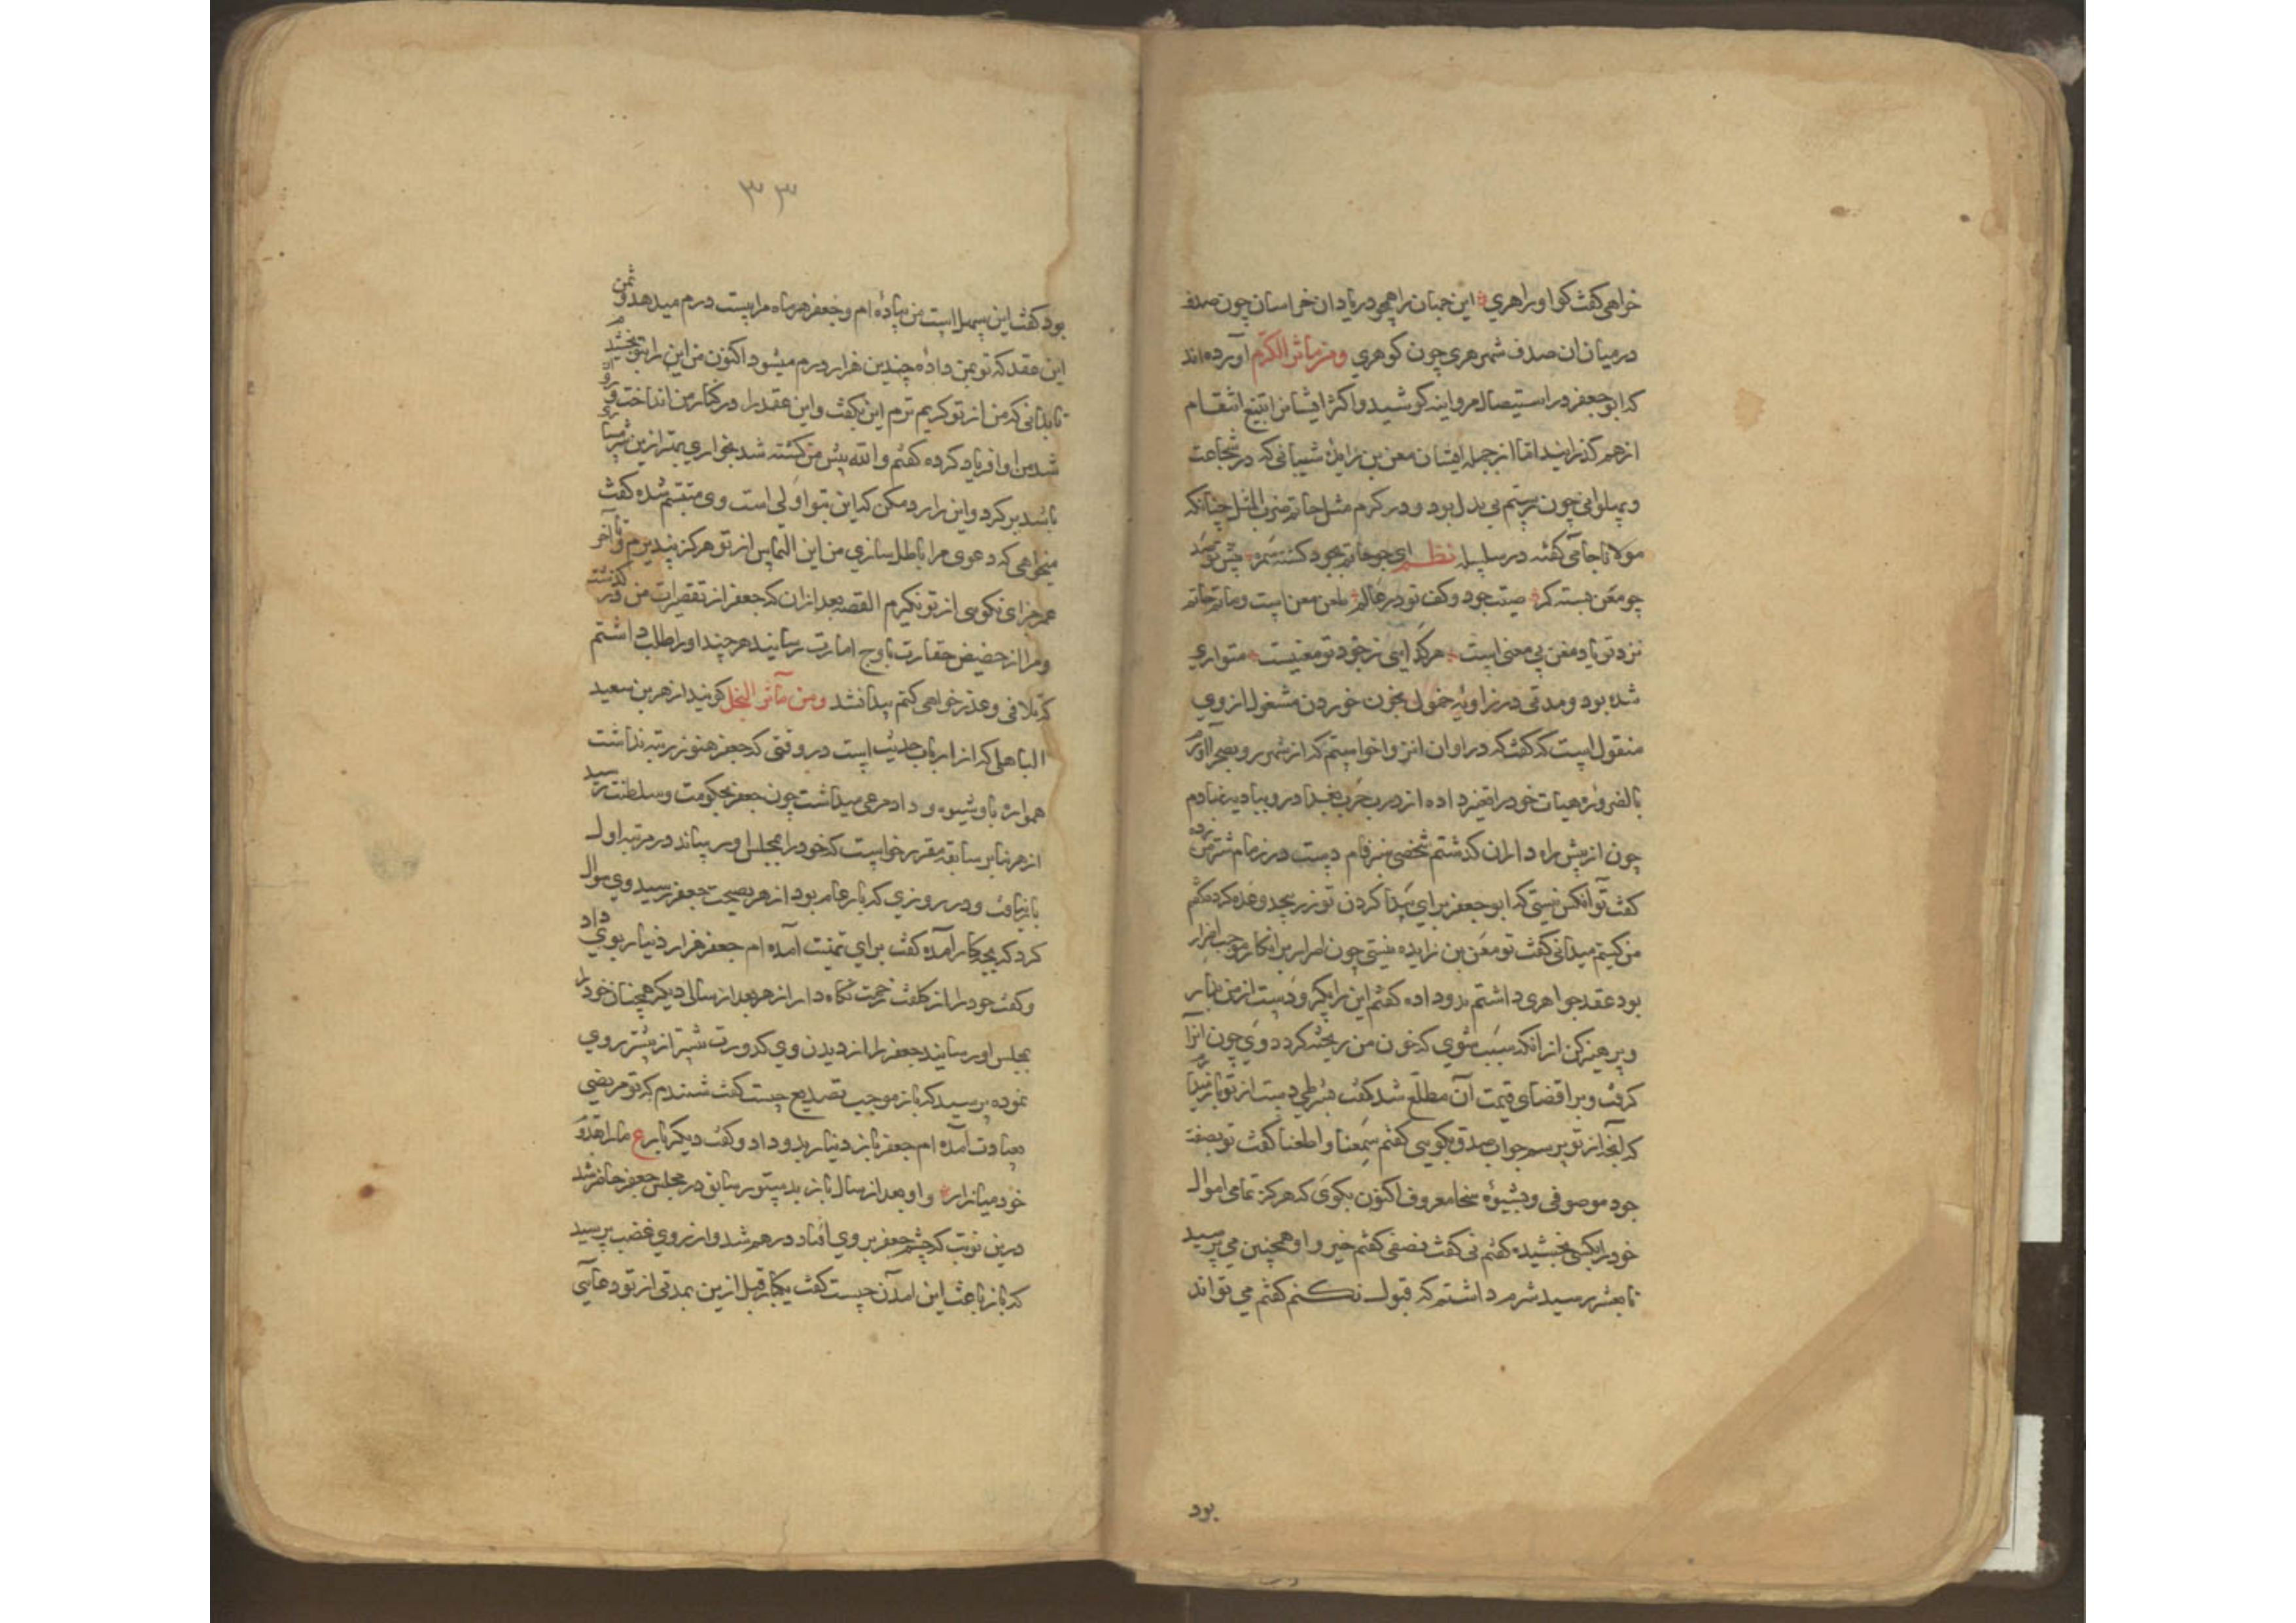 خواهی کفت کو اورا هری این جهان را همچو دریا دان خراسان چون صدف
در میان ان صدف شهر هری چون کوهری ومن مآثر الکرم آورده اند
که ابو جعفر در استیصال مروانیه کوشید واکثر ایشانرا بتیغ انتقام
از هم کذرانید اما از جمله ایشان معن بن زایدهٔ شیبانی که در شجاعت
وپهلوانی چون رستم بی بدل بود ودر کرم مثل حاتم ضرب المثل چنانکه
مولانا جامی کفته در سلسله نظم ای چو حاتم بجود کشته سمر پیش تو صد
چو معن بسته کمر صیت جود وکف تو در عالم طعن معن است وماتم حاتم
نزد تو یاد معن بی معنی است هرکدایی ز جود تو معنیست متواری
شده بود ومدتی در زاویه خمول بخون خوردن مشغول از وی
منقول است که کفت که در اوان انزوا خواستم که از شهر رو بصحرا اورم
بالضروره هیات خودرا تغیر داده از درب حرب بغداد رو ببادیه نهادم
چون از پیش راه داران کذشتم شخصی سبز فام دست در زمام شتر من زده
کفت تو آنکس نیستی که ابو جعفر برای پیدا کردن تو زر بیحد وعده کرده کفتم
من کیستم میدانی کفت تو معن بن زایده نیستی چون اصرار بر انکار موجب اضرار
بود عقد جواهری داشتم بدو داده کفتم این را بکیر ودست از من بدار
وپرهیز کن از انکه سبب شوی که خون من ریخته کردد وی چون انرا
کرفت وبر اقتضای قیمت آن مطلع شد کفت بشرطی دست از تو باز میدارم
که آنچه از تو پرسم جواب صدق بکویی کفتم سمعنا واطعنا کفت تو بصفت
جود موصوفی وبشیوهٔ سخا معروف اکنون بکوی که هرکز تمامی اموال
خودرا بکسی بخشیده کفتم نی کفت نصفی کفتم خیر واو همچنین می پرسید
تا بعشر رسید شرم داشتم که قبول نکنم کفتم می تواند
بود
۳۳
بود کفت این سهل است من پیاده ام وجعفر هر ماه مرا بیست درم میدهد وثمن
این عقد که تو بمن داده چندین هزار درم میشود اکنون من این را بتو بخشیدم
تا بدانی که من از تو کریم ترم این بکفت واین عقد را در کنار من انداخت وروان
شد من اورا فریاد کرده کفتم والله پیش من کشته شد بخواری بهتر ازین شرمساری
باشد بر کرد واین را رد مکن که این بتو اولی است وی متبسم شده کفت
میخواهی که دعوی مرا باطل سازی من این التماس از تو هرکز نپذیرم وتا آخر
عمر جزای نکویی از تو نکیرم القصه بعد از ان که جعفر از تقصیرات من در کذشته
ومرا از حضیض حقارت باوج امارت رسانید هر چند اورا طلب داشتم
که تلافی وعذر خواهی کنم پیدا نشد ومن مآثر البخل کویند ازهر بن سعید
الباهلی که از ارباب حدیث است در وقتی که جعفر هنوز رتبه نداشت
همواره باو شیوه وداد مرعی میداشت چون جعفر بحکومت وسلطنت رسید
ازهر بنابر سابقه مقرر خواست که خودرا بمجلس او رساند در مرتبه اول
بار نیافت ودر روزی که بار عام بود ازهر بصحبت جعفر رسید وی سوال
کرد که بچکار آمده کفت برای تهنیت آمده ام جعفر هزار دینار بوی داد
وکفت خودرا از کلفت زحمت نکاه دار ازهر بعد از سالی دیکر همچنان خودرا
بمجلس او رسانید جعفر را از دیدن وی کدورت بیشتر از پیشتر روی
نموده پرسید که باز موجب تصدیع چیست کفت شنیدم که تو مریضی
بعیادت آمده ام جعفر باز دینار بدو داد وکفت دیکر بار ع مارا وقدم
خود میازار واو بعد از سال باز بدستور سابق در مجلس جعفر حاضر شد
درین نوبت که چشم جعفر بروی افتاد درهم شد واز روی غضب پرسید
که باز باعث این آمدن چیست کفت یکبار قبل ازین بمدتی از تو دعایی